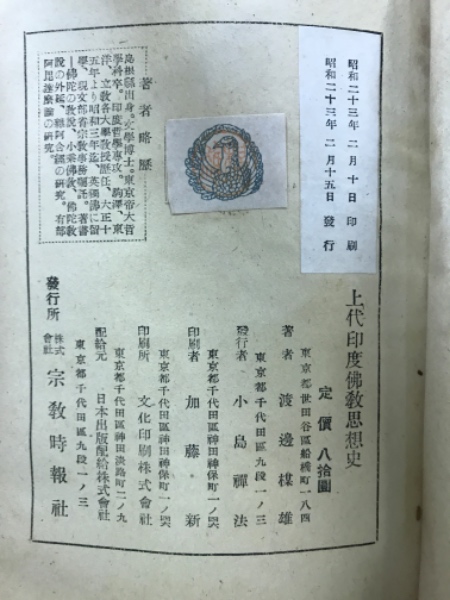 昭和二十三年 二月 十日 印刷
昭和二十三年 二月十五日 發行
上代印度佛敎思想史
定價 八拾圓
東京都世田谷區船橋町一八四
著者 渡邊楳雄
東京都千代田區九段一ノ三
發行者 小島禪法
東京都千代田區神田神保町一ノ
印刷者 加藤 新
東京都千代田區神田神保町一ノ
印刷所 文化印刷株式會社
東京都千代田區神田淡路町二ノ九
配給元 日本出版配給株式會社
東京都千代田區九段一ノ三
發行所 株式會社 宗敎時報社
著者略歷
島根縣出身。文學博士。東京帝大哲
學科卒。印度哲學專攻。駒澤、東
洋、立敎各大學敎授歷任、大正十
五年より昭和三年迄、英獨佛に留
學、現文部省宗敎事務囑託。著書
―佛陀の敎說、小乘佛敎、佛陀敎
說の外延、雜阿含經の研究。有部
阿毘達磨論の研究。